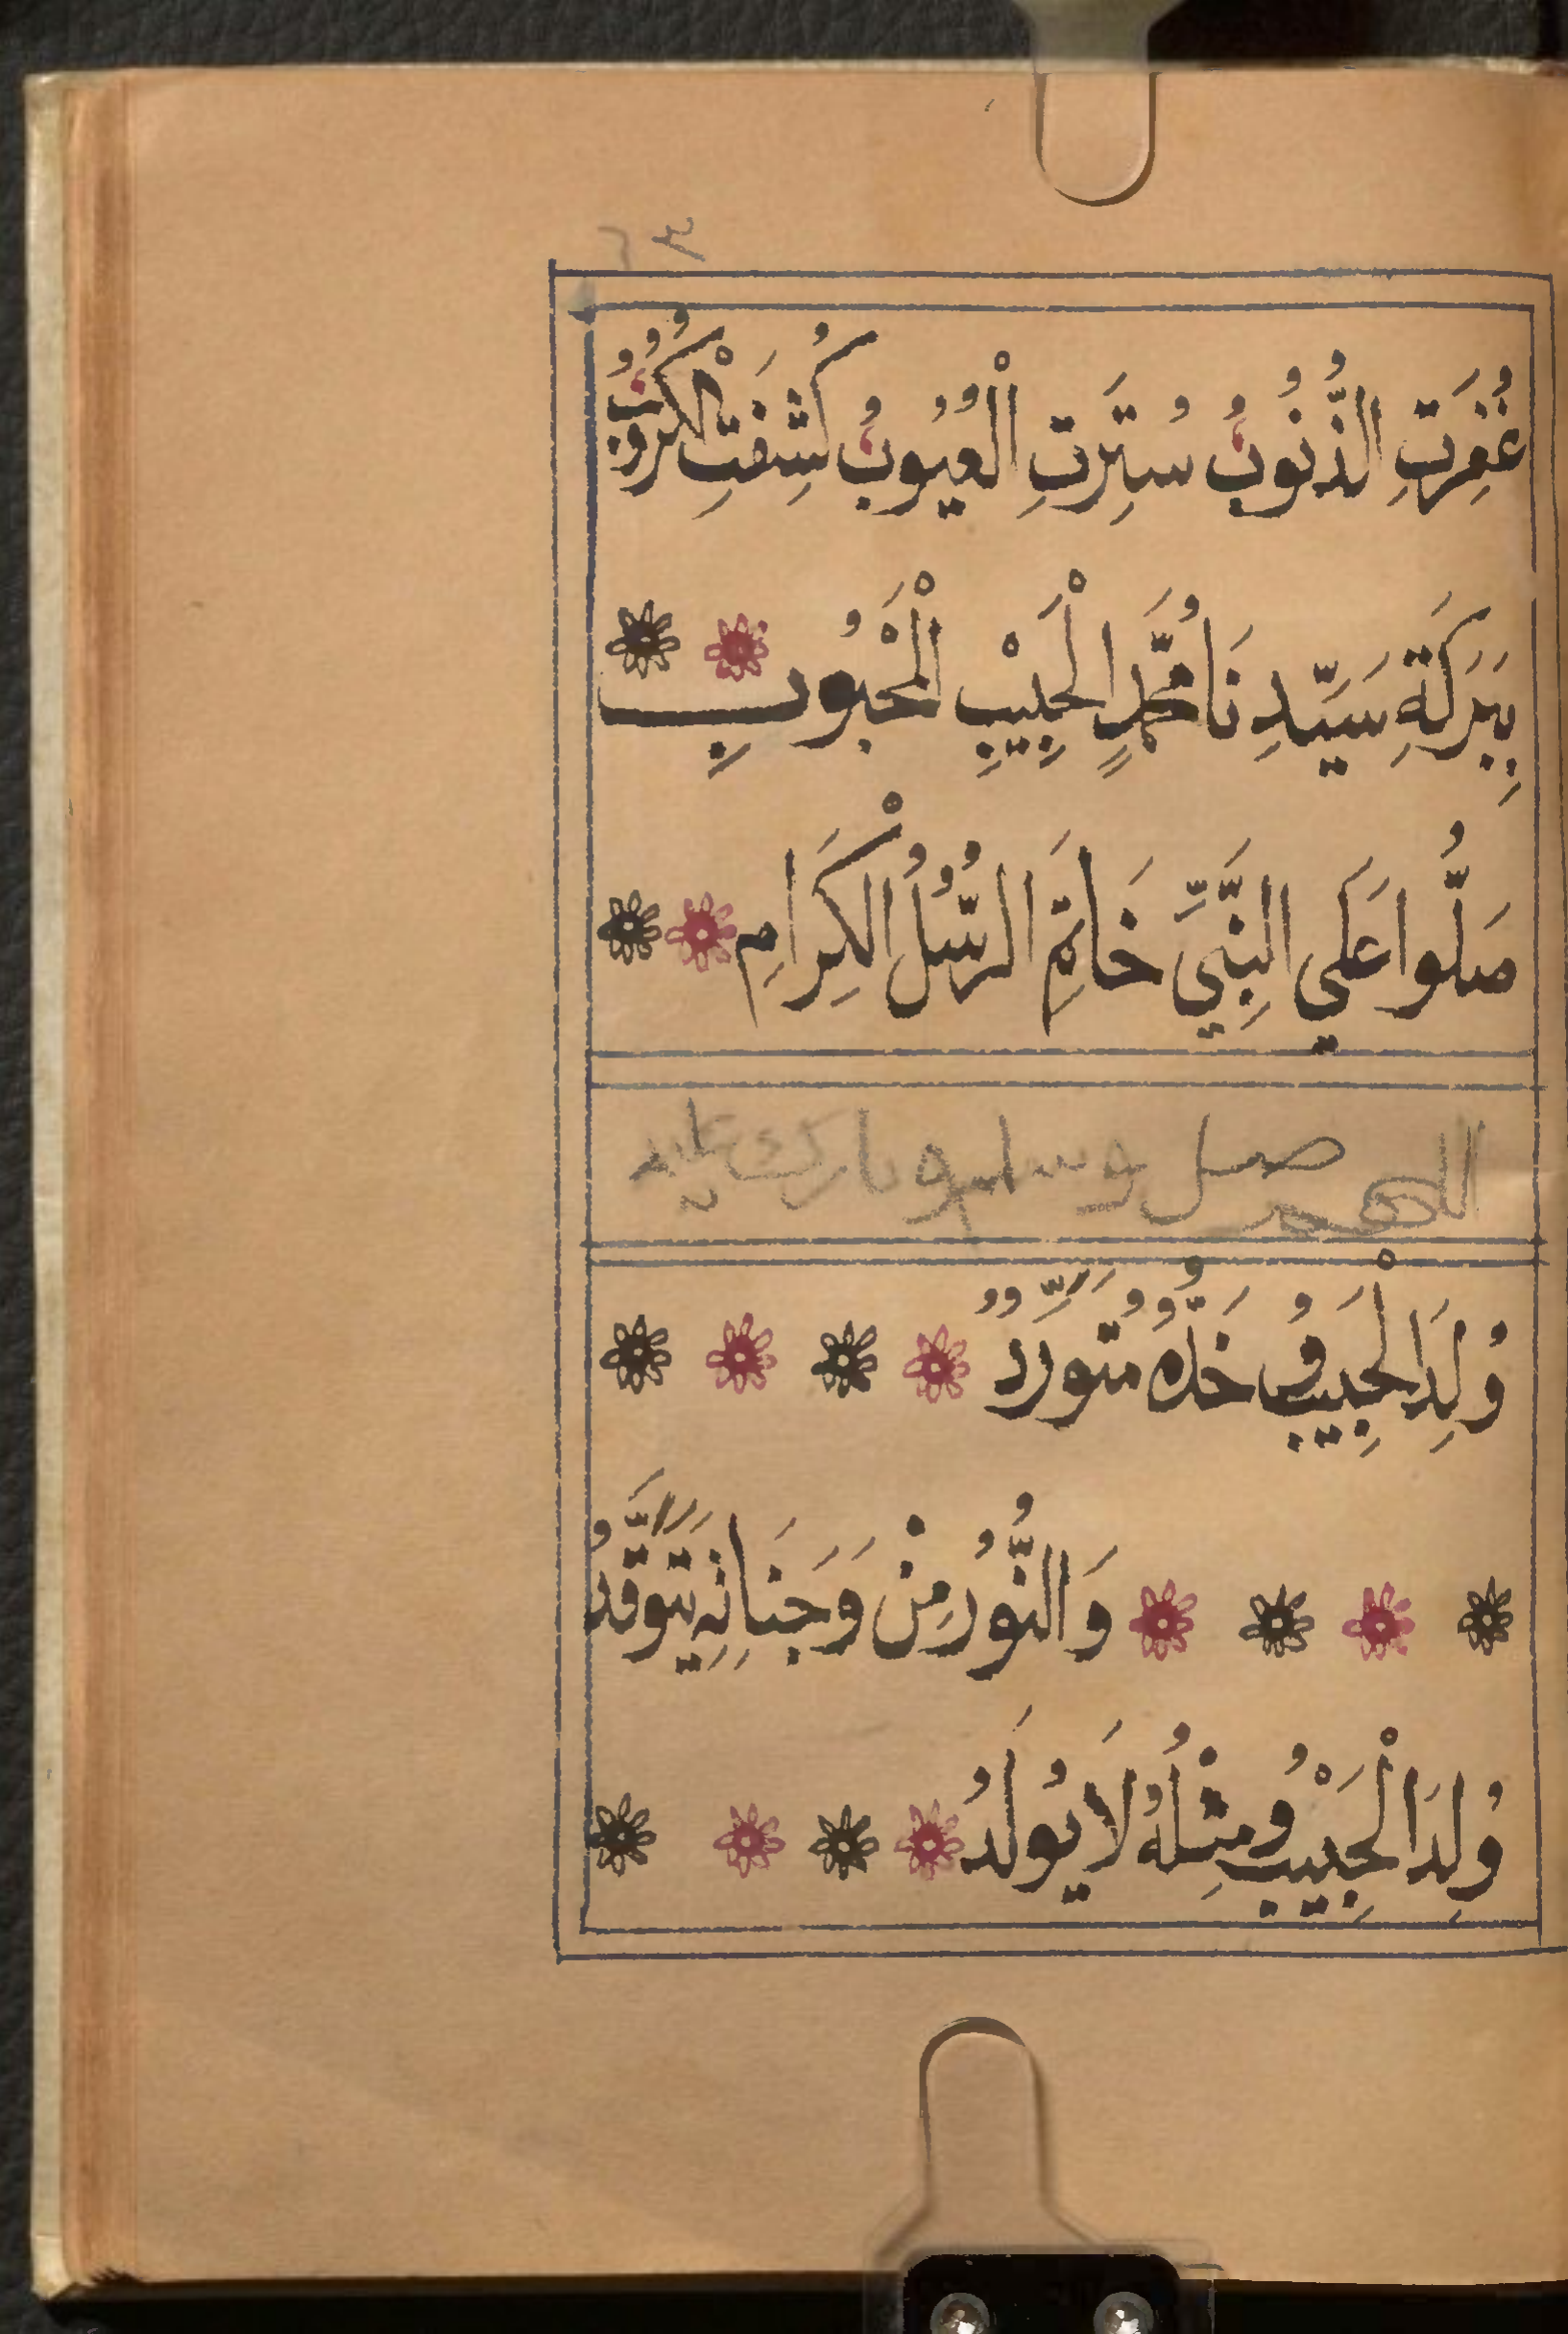 ٦٣
غُفِرَتِ الذُّنُوبُ سُتِرَتِ الْعُيُوبُ كُشِفَتِ الْكُرُوبُ
بِبَرَكَةِ سَيِّدِ نَا مُحَمَّدٍ الْحَبِيْبِ الْمَحْبُوبِ
صَلُّوا عَلَي النَّبِيِّ خَاتِمَ الرُّسُلُ الْكِرَامِ
اللهم صل وسلم وبارك عليه
وُلِدَ الْحَبِيبُ وَخَدُّهُ مُتَوَرِّدُ
وَالنُّورُ مِنْ وَجَنَاتِهِ يَتَوَقَّدُ
وُلِدَ الْحَبِيْبُ وَمِثْلُهُ لَا يُولَدُ